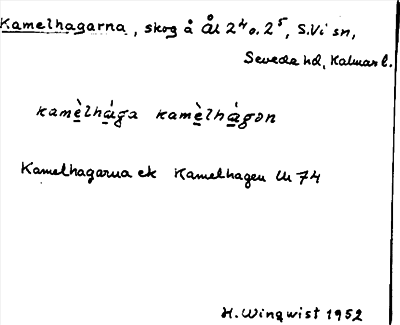 Kamelhagarna, skog å Ål 2⁴ o. 2⁵, S. Vi sn,
Sevede hd, Kalmar l.
kamè̲lhá̲ga kamè̲lhá̲gon
Kamelhagarna ek Kamelhagen Um 74
H. Winqwist 1952